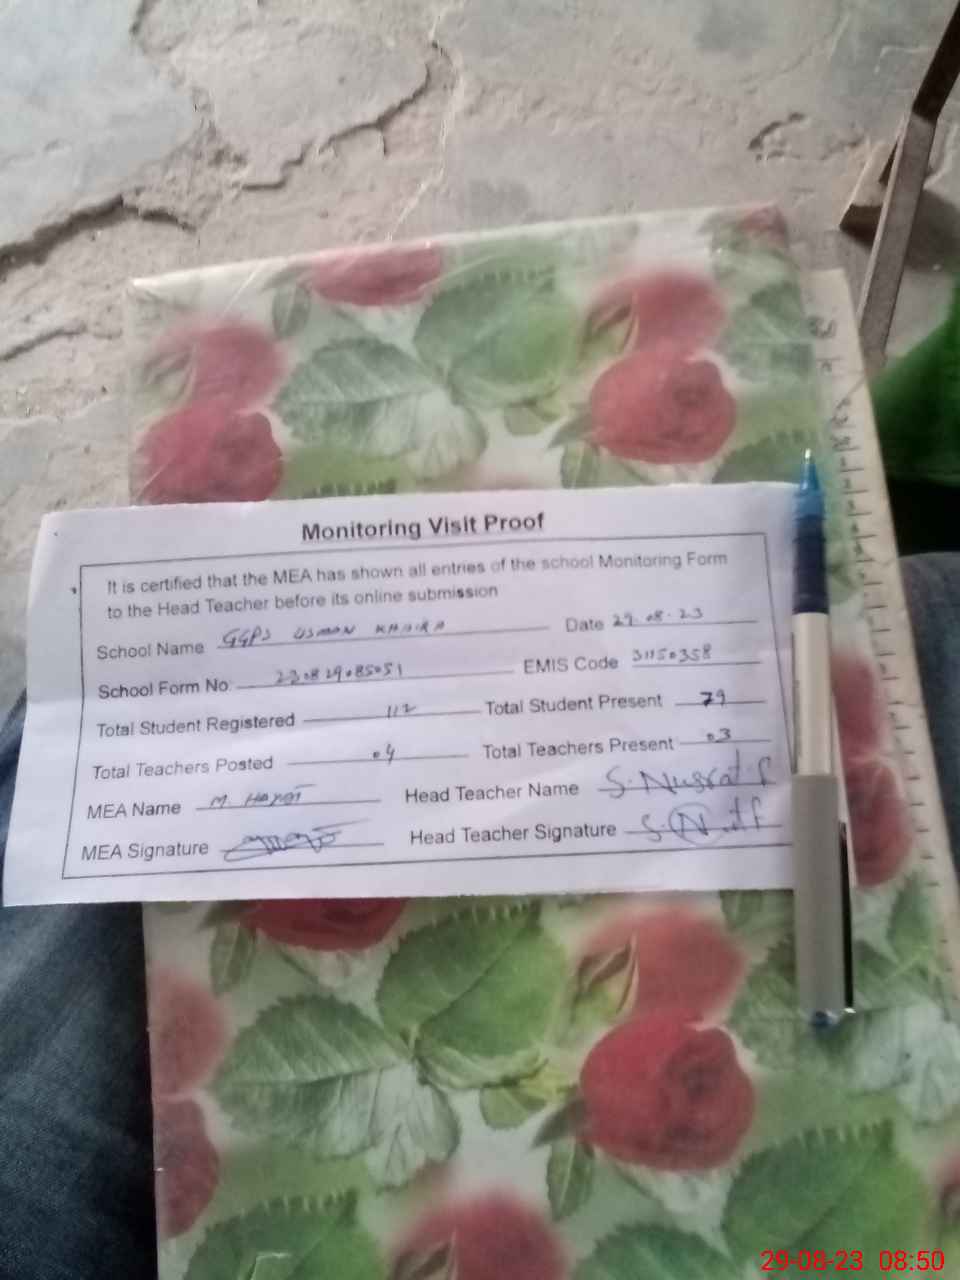 Monitoring Visit Proof
It is certified that the MEA has shown all entries of the school Monitoring Form
to the Head Teacher before its online submission
School Name GGPS USMAN KHAIRA Date 29.08.23
School Form No: 230829085051 EMIS Code 31150358
Total Student Registered 112 Total Student Present 79
Total Teachers Posted 04 Total Teachers Present 03
MEA Name M. HAYAT Head Teacher Name S. Nusrat f
MEA Signature Head Teacher Signature
29-08-23 08:50